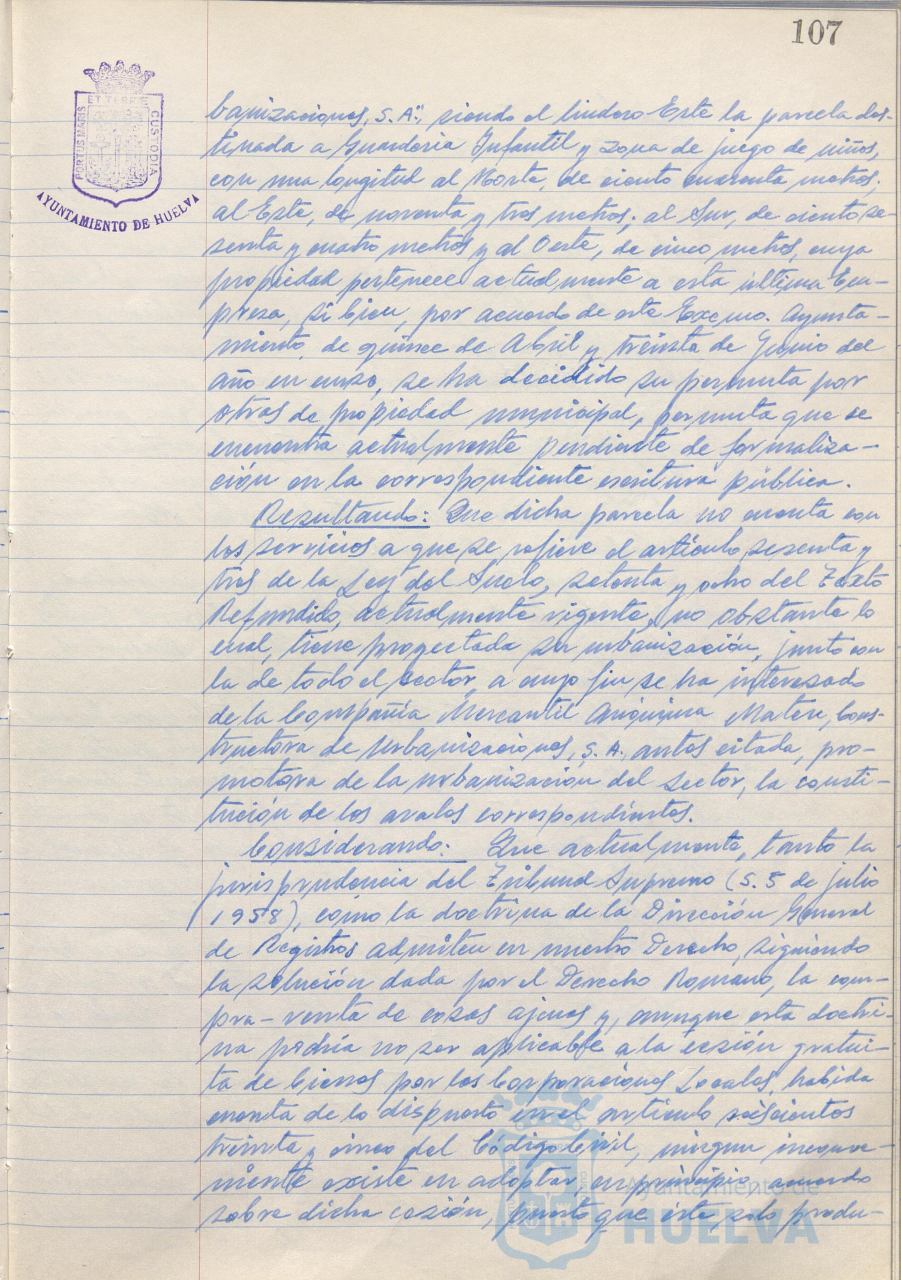 107
PORTUS MARIS
ET TERRE
CUSTODIA
AYUNTAMIENTO DE HUELVA
banizaciones, S.A.", siendo el lindero Este la parcela des-
tinada a Guardería Infantil y zona de juego de niños,
con una longitud al Norte, de ciento cuarenta metros.
al Este, de noventa y tres metros; al Sur, de ciento se-
senta y cuatro metros y al Oeste, de cinco metros, cuya
propiedad pertenece actualmente a esta última Em-
presa, si bien, por acuerdo de este Excmo. Ayunta-
miento, de quince de Abril y treinta de Junio del
año en curso, se ha decidido su permuta por
otras de propiedad municipal, permuta que se
encuentra actualmente pendiente de formaliza-
ción en la correspondiente escritura pública.
Resultando: Que dicha parcela no cuenta con
los servicios a que se refiere el artículo sesenta y
tres de la Ley del Suelo, setenta y ocho del Texto
Refundido, actualmente vigente, no obstante lo
cual, tiene proyectada su urbanización, junto con
la de todo el sector, a cuyo fin se ha interesado
de la Compañía Mercantil Anónima Matere, Cons-
tructora de Urbanizaciones, S.A. antes citada, pro-
motora de la urbanización del sector, la consti-
tución de los avales correspondientes.
Considerando: Que actualmente, tanto la
jurisprudencia del Tribunal Supremo (S. 5 de julio
1958), como la doctrina de la Dirección General
de Registros admiten en nuestro Derecho, siguiendo
la solución dada por el Derecho Romano, la com-
pra-venta de cosas ajenas y, aunque esta doctri-
na podría no ser aplicable a la cesión gratui-
ta de bienes por las Corporaciones Locales, habida
cuenta de lo dispuesto en el artículo seiscientos
treinta y cinco del Código Civil, ningún inconve-
niente existe en adoptar, en principio, acuerdo
sobre dicha cesión, puesto que éste solo produ-
Ayuntamiento de
HUELVA